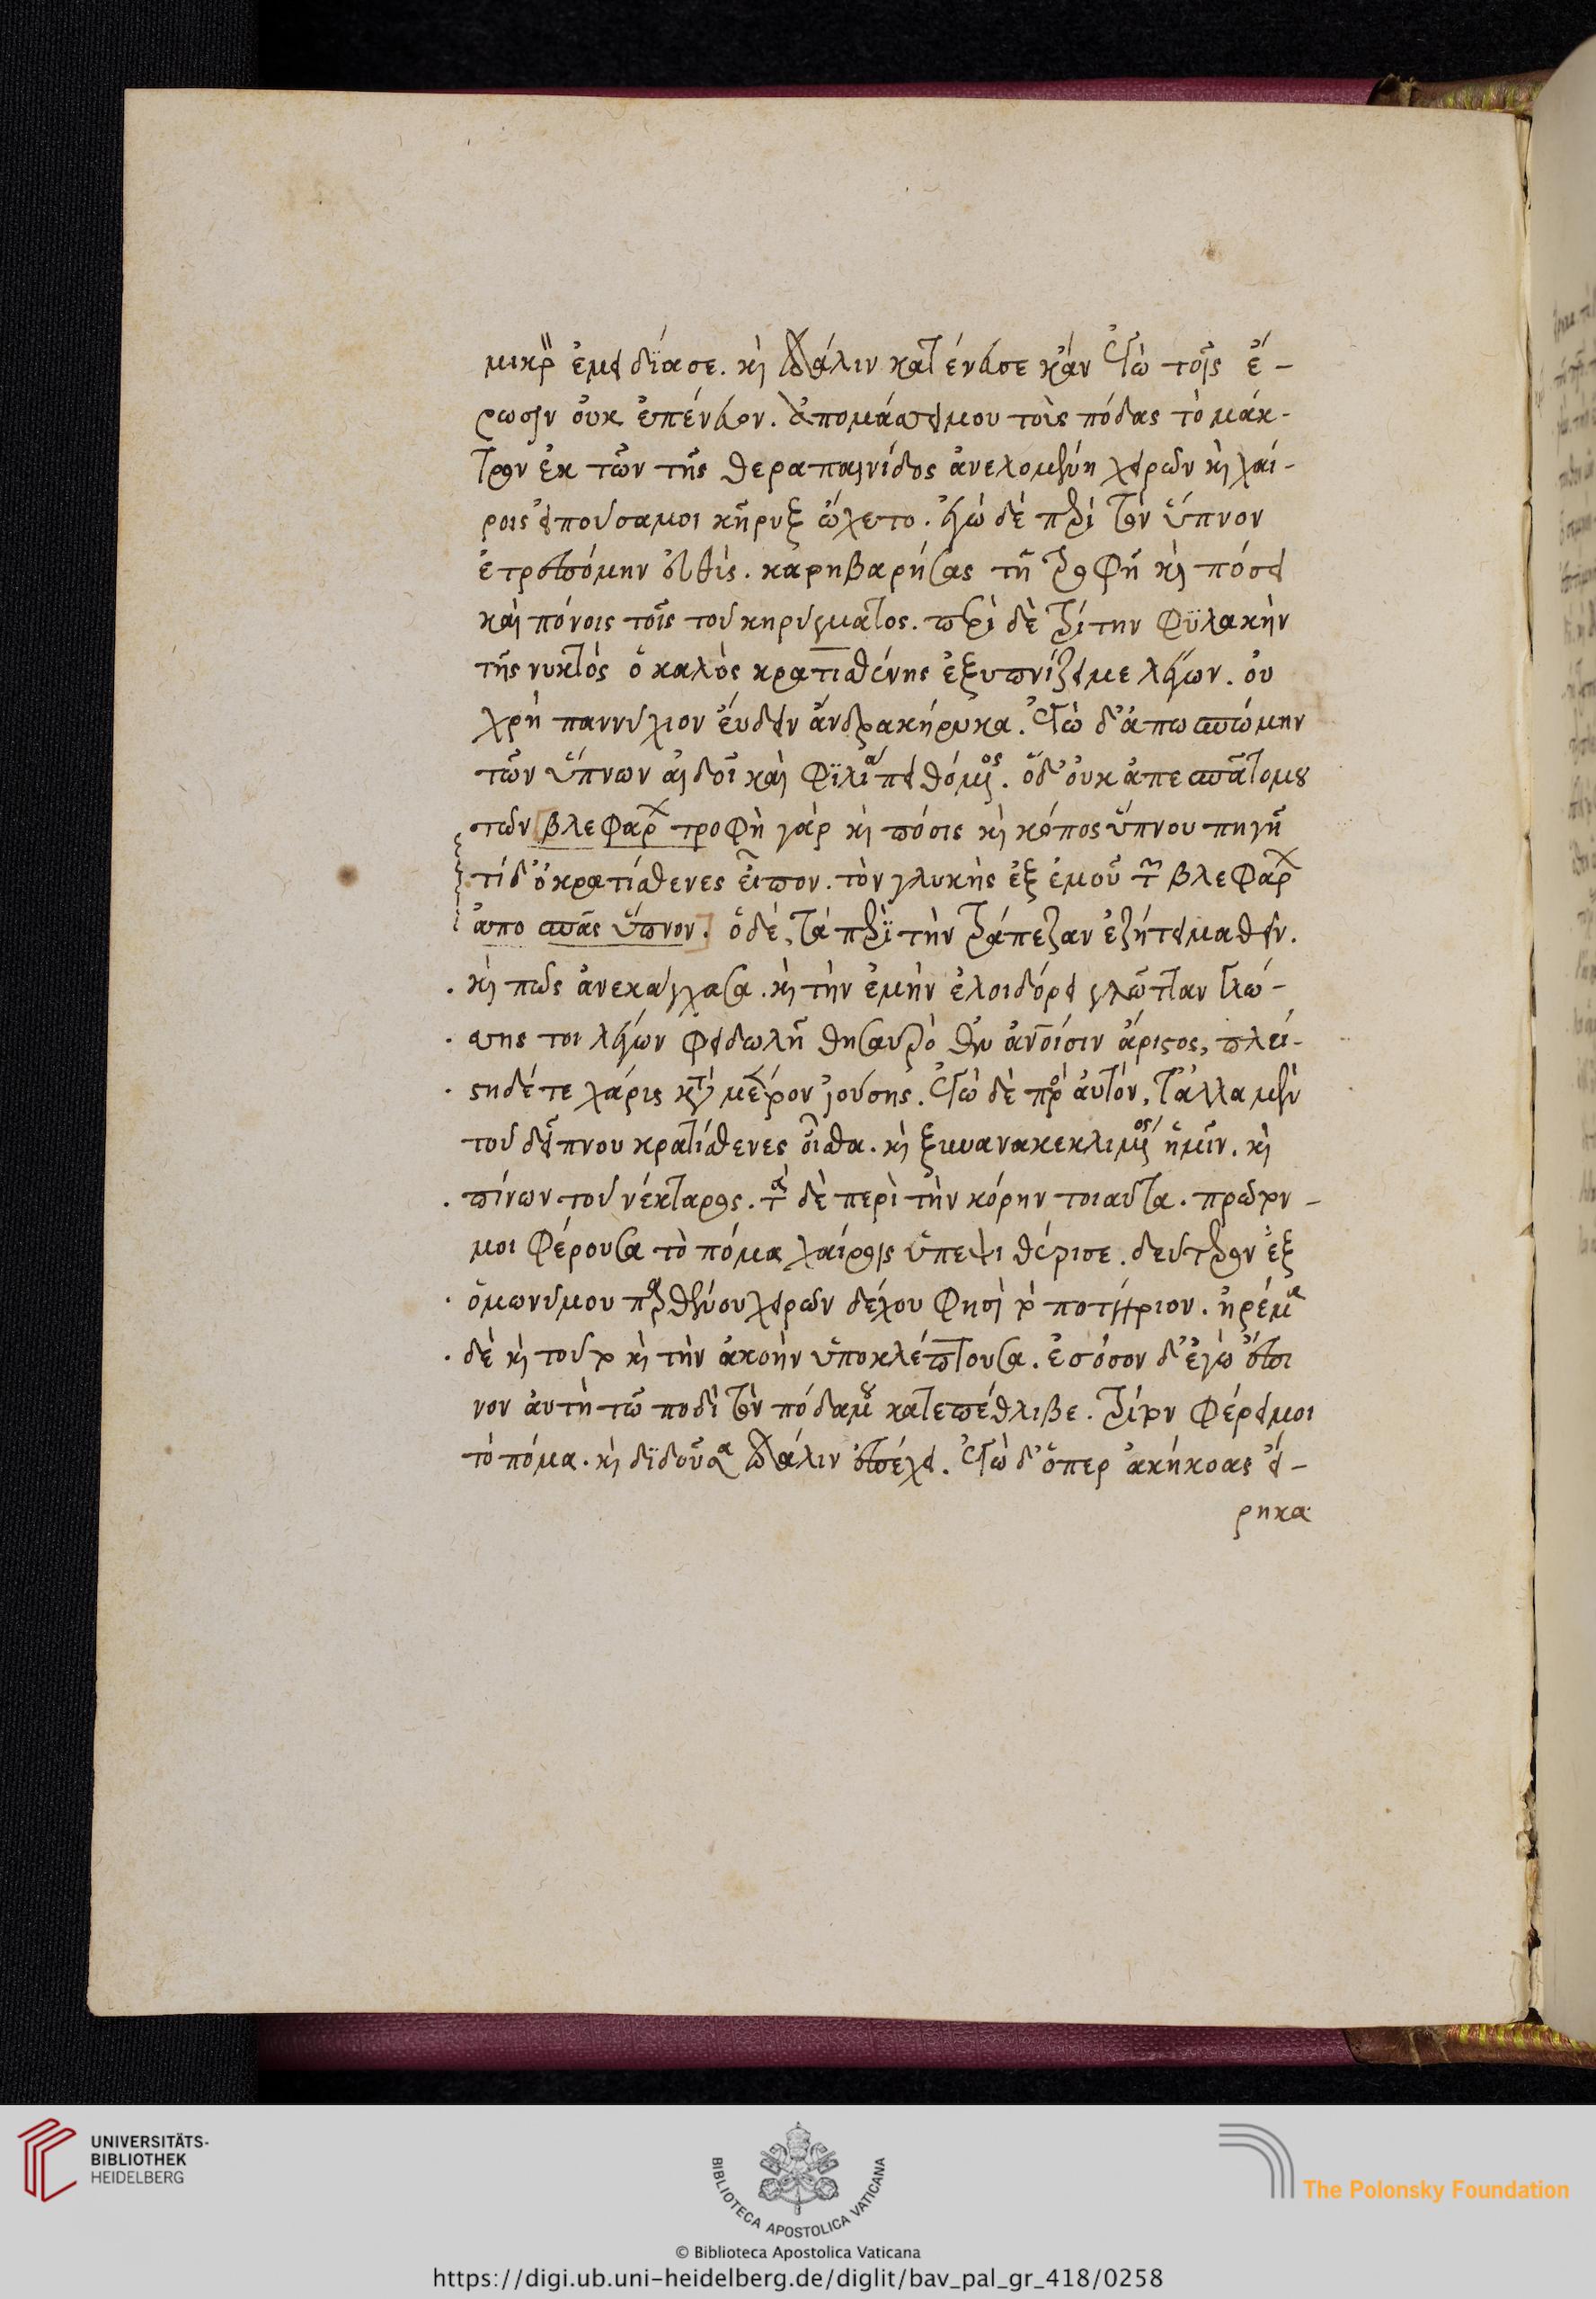 μικρὸν ἐμειδίασε. καὶ πάλιν κατένευσε κἂν ἐγὼ τοῖς ἔ-
ρωσιν οὐκ ἐπένευον. ἀπομάττει μου τοὺς πόδας τὸ μάκ-
τρον ἐκ τῶν τῆς θεραπαινίδος ἀνελομένη χειρῶν καὶ χαί-
ροις εἰποῦσα μοι κῆρυξ ὤχετο. ἐγὼ δὲ περὶ τὸν ὕπνον
ἐτραπόμην εὐθὺς. καρηβαρήσας τῇ τροφῇ καὶ πόσει
καὶ πόνοις τοῖς τοῦ κηρύγματος. περὶ δὲ τρίτην φϋλακὴν
τῆς νυκτὸς ὁ καλὸς κρατισθένης ἐξυπνίζει με λέγων. οὐ
χρὴ παννύχιον εὕδειν ἄνδρα κήρυκα. ἐγὼ δ' ἀπωσπώμην
τῶν ὕπνων αἰδοῖ καὶ φϊλίᾳ πειθόμενος. ὁ δ' οὐκ ἀπεσπᾶτό μου
τῶν βλεφάρων τροφὴ γὰρ καὶ πόσις καὶ κόπος ὕπνου πηγὴ
τί δ' ὁ κρατίσθενες εἶπον. τὸν γλυκὺς ἐξ ἐμοῦ τῶν βλεφάρων
ἀποσπᾷς ὕπνον. ὁ δὲ, τὰ περὶ τὴν τράπεζαν ἐζήτει μαθεῖν.
καὶ πως ἀνεκάγχασα. καὶ τὴν ἐμὴν ἐλοιδόρει γλῶτταν γλώ-
σσης τοι λέγων φειδωλῆ θησαυρὸς ἐν ἀνοίσιν ἄριστος, πλεί-
στη δέ τε χάρις κατὰ μέτρον ἰούσης. ἐγὼ δὲ πρὸς αὐτὸν, τἄλλα μὲν
τοῦ δείπνου κρατίσθενες οἶσθα. καὶ ξυνανακεκλιμένος ἡμῖν. καὶ
πίνων τοῦ νέκταρος. τὰ δὲ περὶ τὴν κόρην τοιαῦτα. πρῶτον
μοι φέρουσα τὸ πόμα χαίροις ὑπεψιθύρισε. δεύτερον ἐξ
ὁμωνύμου παρθένου χειρῶν δέχου φησὶ τὸ ποτήριον. ἠρέμα
δὲ καὶ τοῦτο καὶ τὴν ἀκοὴν ὑποκλέπτουσα. ἐς ὅσον δ' ἐγὼ ἔπι
νον αὐτὴ τῷ ποδὶ τὸν πόδα μου κατεπέθλιβε. τρίτον φέρει μοι
τὸ πόμα. καὶ δϊδοῦσα πάλιν ἐπέχει. ἐγὼ δ' ὅπερ ἀκήκοας εἴ-
ρηκα
UNIVERSITÄTS-
BIBLIOTHEK
HEIDELBERG
BIBLIOTECA APOSTOLICA VATICANA
© Biblioteca Apostolica Vaticana
The Polonsky Foundation
https://digi.ub.uni-heidelberg.de/diglit/bav_pal_gr_418/0258